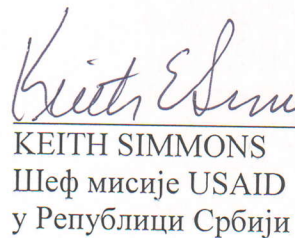 Keith E Simm
KEITH SIMMONS
Шеф мисије USAID
у Републици Србији